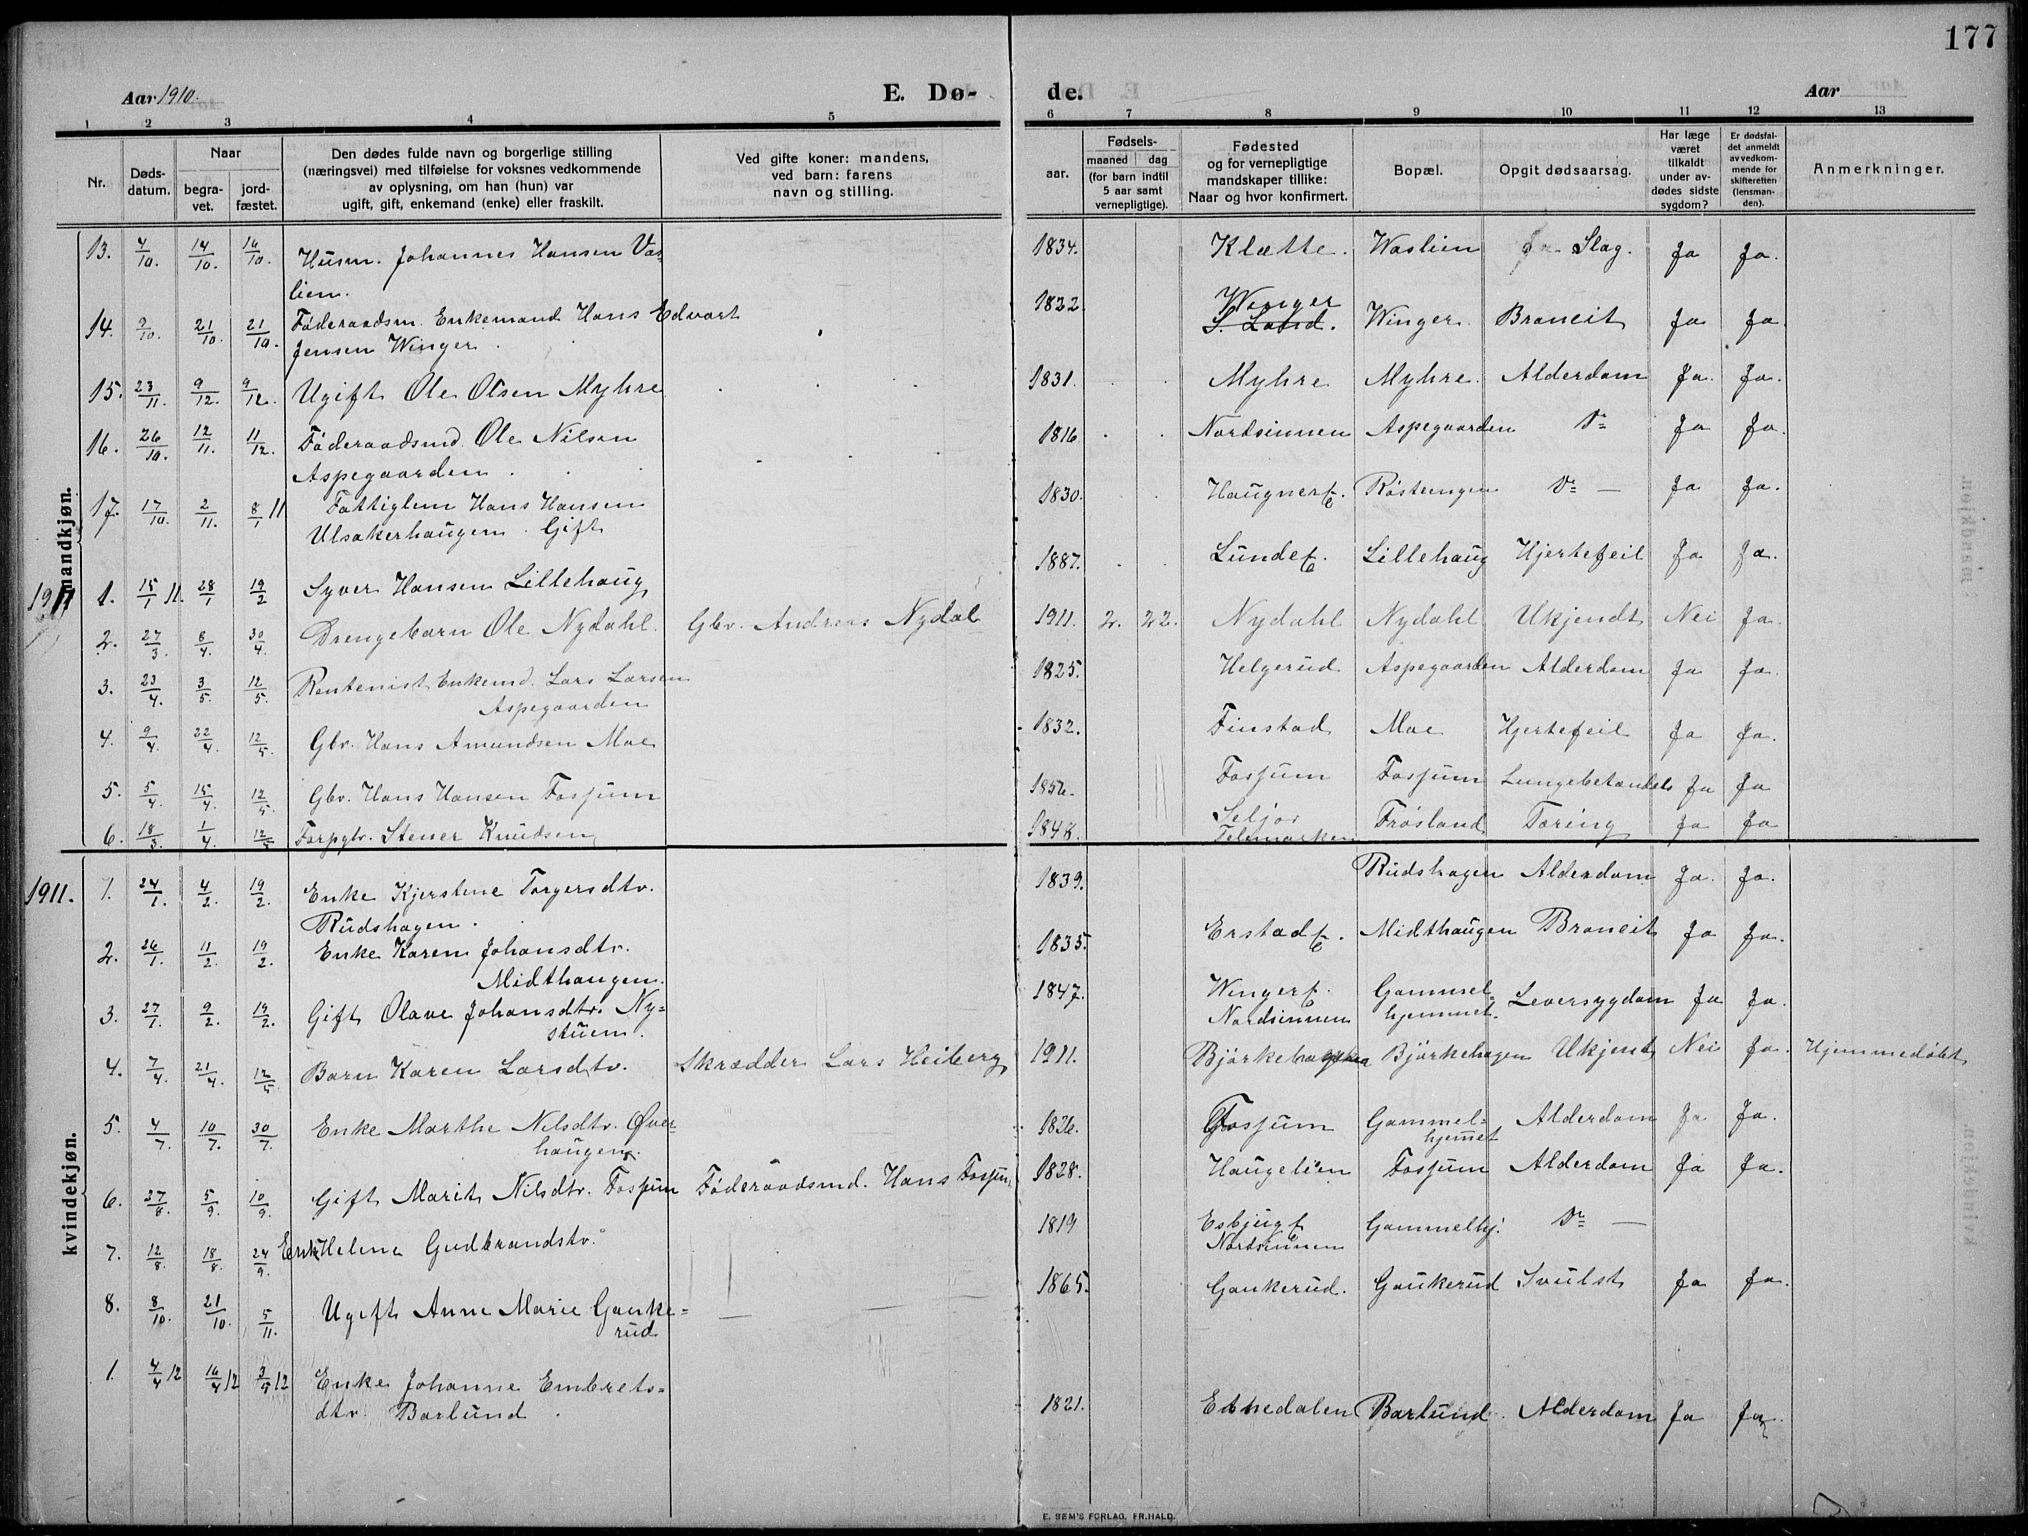 177
Aar 1910.
E. Dø-
de.
Aar
1 2 3 4 5 6 7 8 9 10 11 12 13
Nr.
Døds-
datum.
Naar
begra-
vet.
jord-
fæstet.
Den dødes fulde navn og borgerlige stilling
(næringsvei) med tilføielse for voksnes vedkommende
av oplysning, om han (hun) var
ugift, gift, enkemand (enke) eller fraskilt.
Ved gifte koner: mandens,
ved barn: farens
navn og stilling.
Fødsels-
aar.
maaned dag
(for barn indtil
5 aar samt
vernepligtige).
Fødested
og for vernepligtige
mandskaper tillike:
Naar og hvor konfirmert.
Bopæl.
Opgit dødsaarsag.
Har læge
været
tilkaldt
under av-
dødes sidste
sygdom?
Er dødsfal-
det anmeldt
av vedkom-
mende for
skifteretten
(lensman-
den).
Anmerkninger.
mandkjøn.
13. 4/10. 14/10. 16/10. Husm. Johannes Hansen Vas-
lien. 1834. Klætte. Waslien Slag. Ja Ja.
14. 9/10. 21/10. 21/10. Føderaadsm. Enkemand Hans Edvart
Jensen Winger. 1832. Winger
S. Land. Winger. Broncit Ja Ja.
15. 23/11. 9/12. 9/12. Ugift Ole Olsen Myhre 1831. Myhre Myhre. Alderdom Ja. Ja.
16. 26/10. 12/11. 11/12. Føderaadsmd. Ole Nilsen
Aspegaarden. 1816. Nordsinnen Aspegaarden Do Ja Ja.
17. 17/10. 2/11. 8/1 11 Fattiglem Hans Hansen
Ulsakerhaugen. Gift 1830. Haugnere. Røstengen Do — Ja Ja.
1911 1. 15/1 11. 28/1 19/2 Syver Hansen Lillehaug 1887. Lunde. Lillehaug Hjertefeil Ja Ja.
2. 27/3. 8/4. 30/4. Drengebarn Ole Nydahl. Gbr. Andreas Nydal 1911. 2. 22. Nydahl Nydahl Ukjendt Nei Ja.
3. 23/4. 3/5. 12/5. Rentenist Enkemd. Lars Larsen
Aspegaarden 1825. Helgerud Aspegaarden Alderdom Ja Ja.
4. 9/4. 22/4. 12/5. Gbr. Hans Amundsen Moe 1832. Finstad Moe Hjertefeil Ja Ja.
5. 5/4. 15/4. 12/5. Gbr. Hans Hansen Fosjum 1856. Fosjum Fosjum Lungebetændels Ja Ja
6. 18/3. 1/4. 12/5 Forpgbr. Stener Knudsen 1848. Seljor
Telemarken Frøsland Tæring Ja Ja
kvindekjøn.
1911. 1. 24/1. 4/2. 19/2. Enke Kjerstene Torgersdtr.
Rudshagen. 1839. Rudshagen Alderdom Ja. Ja.
2. 26/1. 11/2. 19/2. Enke Karen Johansdtr.
Midthaugen. 1835. Erstad. Midthaugen Broncit Ja Ja.
3. 27/1. 9/2. 19/2. Gift Olave Johansdtr. Ny-
stuen. 1847. Winger.
Nordsinnen Gammel-
hjemmet. Leversygdom Ja Ja.
4. 7/4. 21/4. 12/5. Barn Karen Larsdtr. Skrædder Lars Heiberg 1911. Bjørkehagen Bjørkehagen Ukjent Nei Ja. Hjemmedøbt
5. 4/7. 10/7. 30/7. Enke Marthe Nilsdtr. Øver-
haugen. 1826. Fosjum Gammel-
hjemet Alderdom Ja Ja.
6. 27/8. 5/9. 10/9. Gift Marit Nilsdtr. Fosjum Føderaadsmd. Hans Fosjum 1828. Haugelien Fosjum Alderdom Ja Ja.
7. 12/8. 18/8. 24/9. Enke Helene Gudbrandstr. 1819 Esbjug
Nordsinnen Gammelhj. Do —
8. 8/10. 21/10. 5/11. Ugift Anne Marie Gauke-
rud 1865. Gaukerud. Gaukerud Svulst Ja Ja.
1. 4/4 12 16/4 12 3/5 12 Enke Johanne Embrets-
dtr. Barlund. 1821. Etnedalen Barlund. Alderdom Ja Ja.
E. SEM'S FORLAG, FR.HALD.